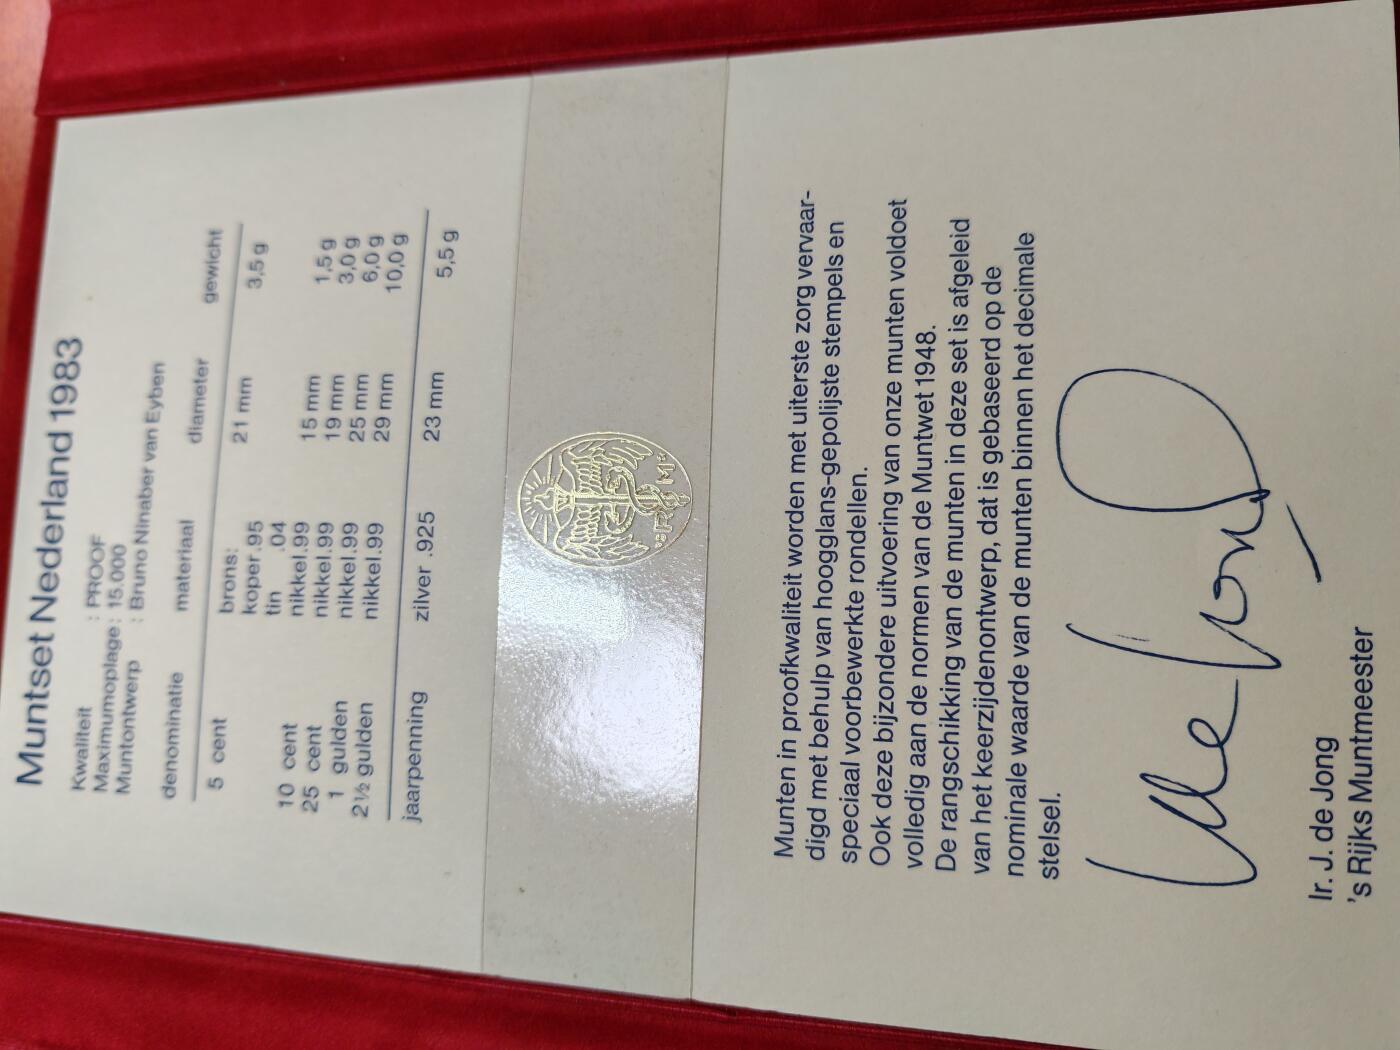 Muntset Nederland 1983
Kwaliteit : PROOF
Maximumoplage : 15.000
Muntontwerp : Bruno Ninaber van Eyben
denominatie materiaal diameter gewicht
5 cent brons: 21 mm 3,5 g
koper .95
tin .04
10 cent nikkel .99 15 mm 1,5 g
25 cent nikkel .99 19 mm 3,0 g
1 gulden nikkel .99 25 mm 6,0 g
2½ gulden nikkel .99 29 mm 10,0 g
jaarpenning zilver .925 23 mm 5,5 g
Munten in proofkwaliteit worden met uiterste zorg vervaar-
digd met behulp van hoogglans-gepolijste stempels en
speciaal voorbewerkte rondellen.
Ook deze bijzondere uitvoering van onze munten voldoet
volledig aan de normen van de Muntwet 1948.
De rangschikking van de munten in deze set is afgeleid
van het keerzijdenontwerp, dat is gebaseerd op de
nominale waarde van de munten binnen het decimale
stelsel.
Ir. J. de Jong
's Rijks Muntmeester